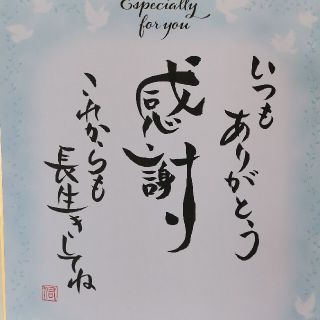 Especially
for you
いつも
ありがとう
感謝
これからも
長生きしてね